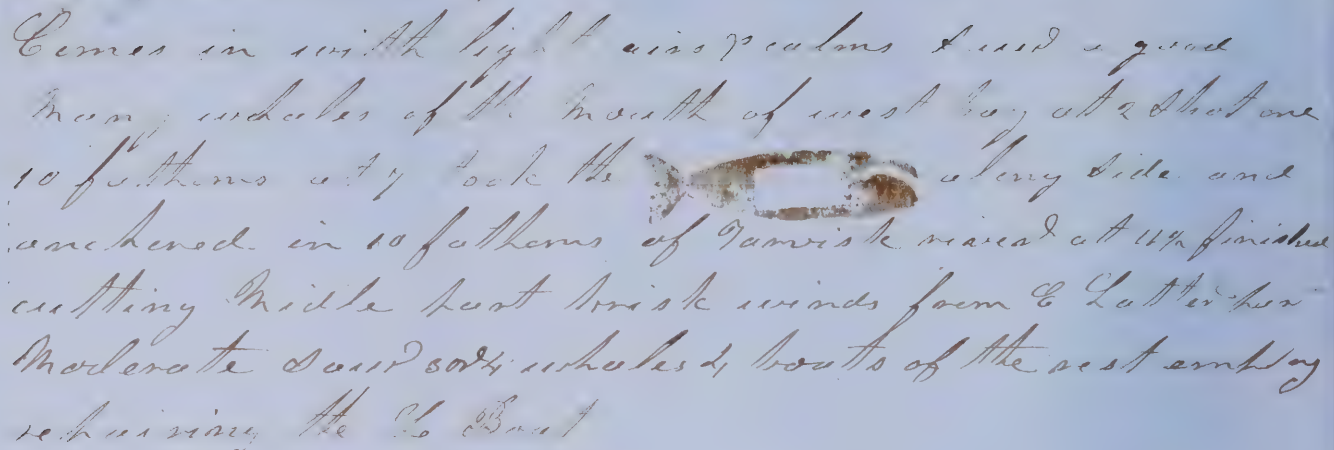 Comes in with light airs & calms Saw a good
Many whales of the Mouth of west bay at 2 Shot one
10 fathoms at 7 took the along Side and
anchored in 10 fathoms of river at 11 finished
cutting Midle part brisk winds from E Latter par
Moderate Saw 3 or 4 whales 2 boats of the rest employ
repairing the Boat